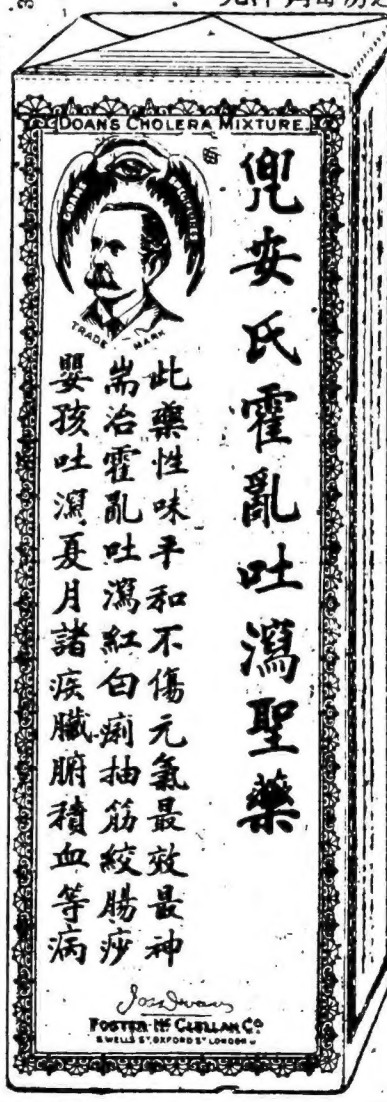 DOAN'S CHOLERA MIXTURE.
TRADE MARK
兜安氏霍亂吐瀉聖藥
此藥性味平和不傷元氣最效最神
耑治霍亂吐瀉紅白痢抽筋絞腸痧
嬰孩吐瀉夏月諸疾臟腑積血等病
FOSTER-Mc CLELLAN Co
8 WELLS ST, OXFORD ST LONDON W